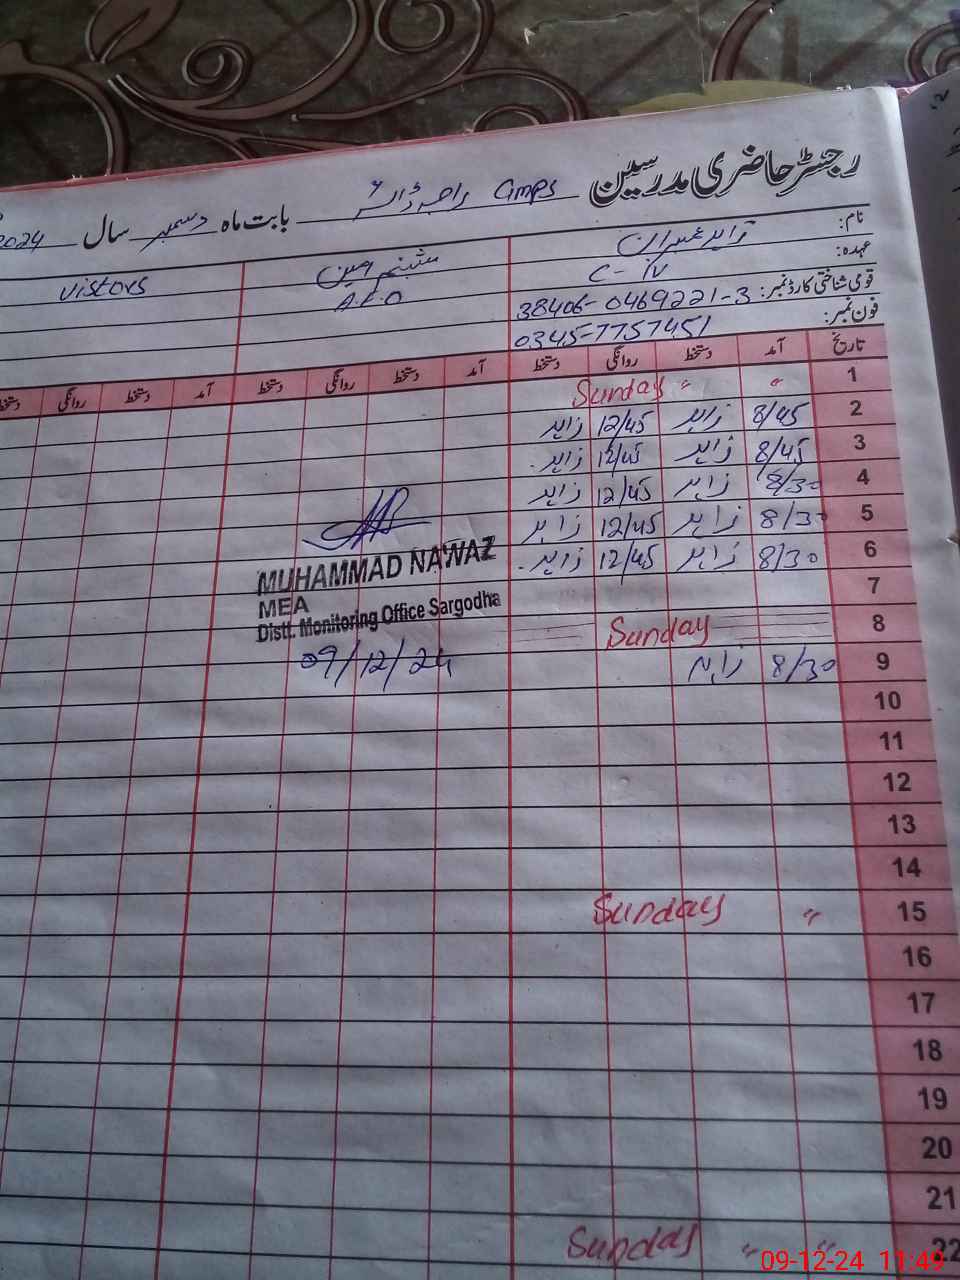 رجسٹر حاضری مدرسین GMPS راجہ بابت ماہ دسمبر سال 2024
نام: زاہد عمران شبنم Vistors
عہدہ: C-IV A.E.O
قومی شناختی کارڈ نمبر: 38406-0469221-3
فون نمبر: 0345-7757451
تاریخ آمد دستخط روانگی دستخط آمد دستخط روانگی دستخط آمد دستخط روانگی دستخط
1 " " Sunday
2 8/45 زاہد 12/45 زاہد
3 8/45 زاہد 12/45 زاہد
4 8/30 زاہد 12/45 زاہد
5 8/30 زاہد 12/45 زاہد
6 8/30 زاہد 12/45 زاہد
MUHAMMAD NAWAZ
MEA
Distt. Monitoring Office Sargodha
09/12/24
7
8 Sunday
9 8/30 زاہد
10
11
12
13
14
15 " Sunday
16
17
18
19
20
21
22 " " Sunday
09-12-24 11:49